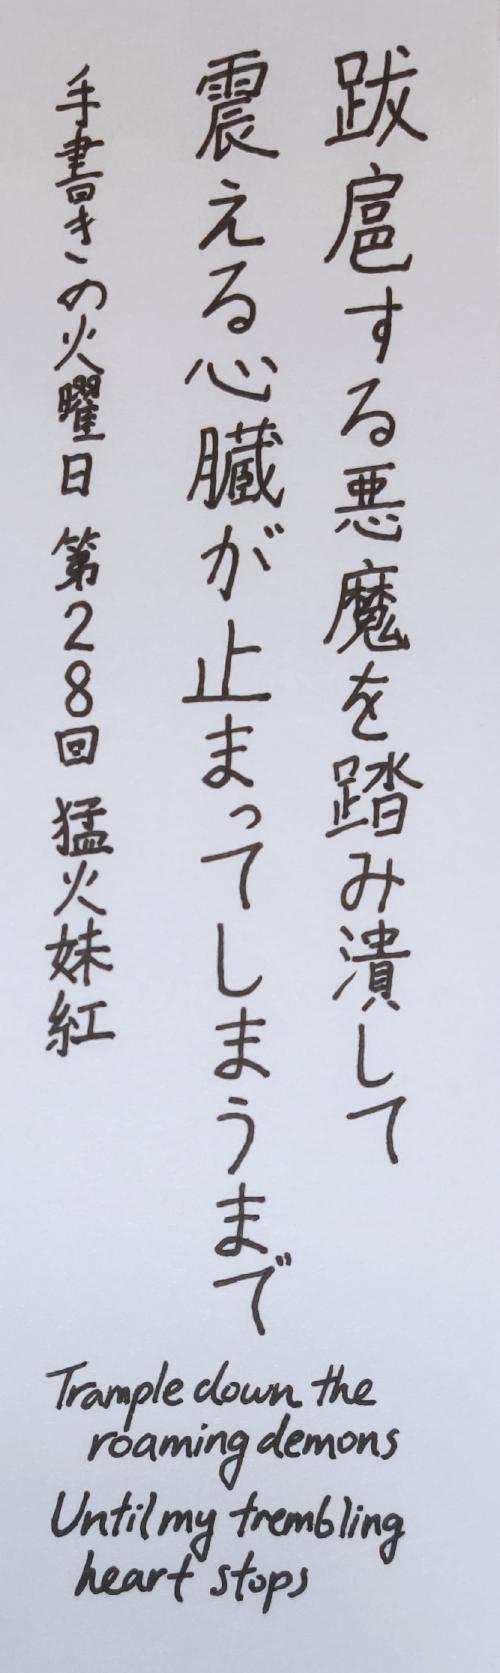 跋扈する悪魔を踏み潰して
震える心臓が止まってしまうまで
手書きの火曜日 第28回 猛火妹紅
Trample down the
roaming demons
Until my trembling
heart stops